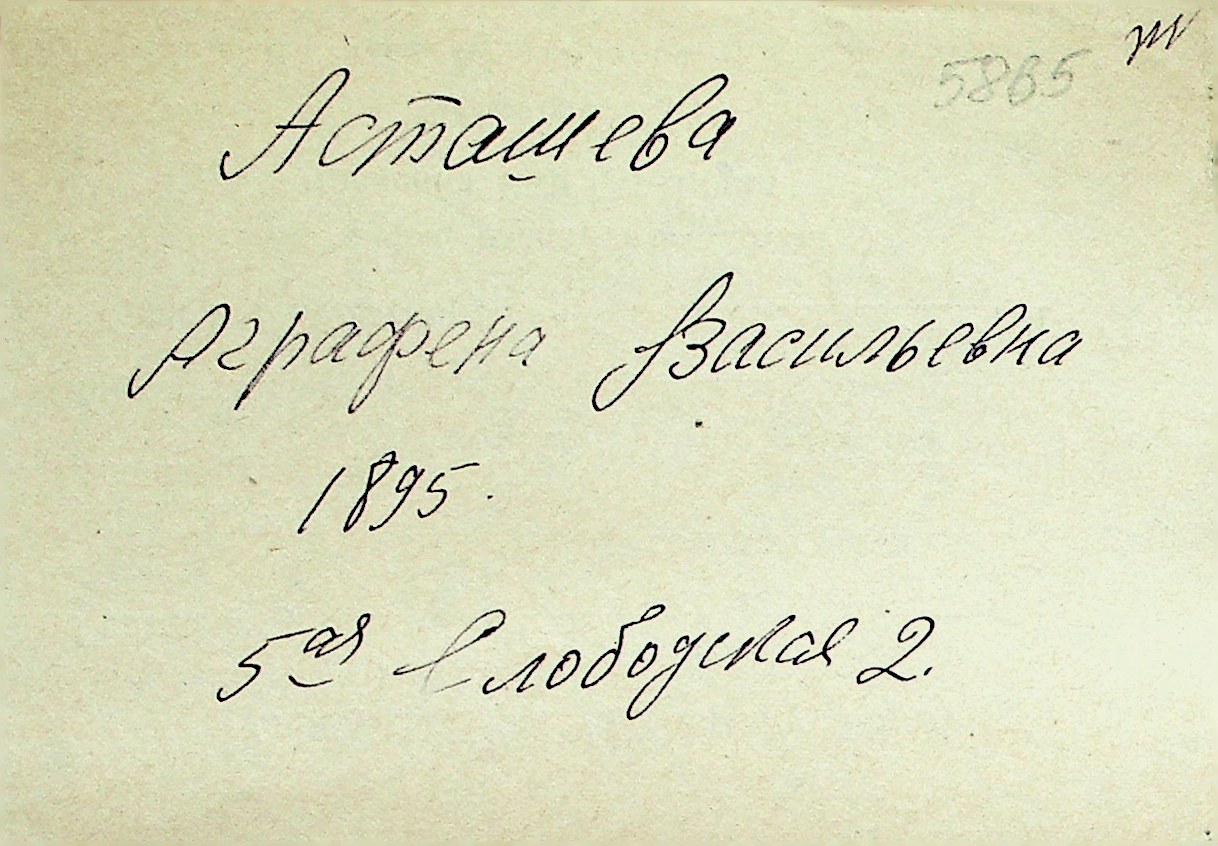 5865
Асташева
Аграфена Васильевна
1895.
5ая Слободская 2.